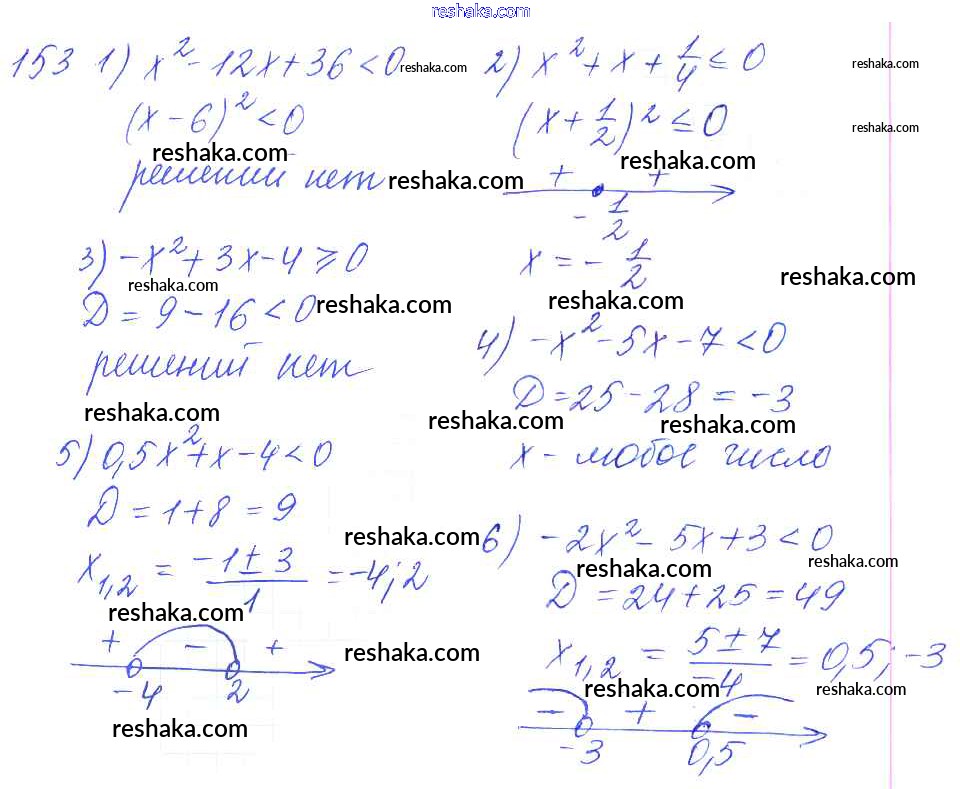 reshaka.com
153 1) x² - 12x + 36 < 0 reshaka.com
(x - 6)² < 0
reshaka.com
решений нет reshaka.com
2) x² + x + 1/4 ≤ 0 reshaka.com
(x + 1/2)² ≤ 0 reshaka.com
reshaka.com
+ +
- 1/2
x = - 1/2
reshaka.com
reshaka.com
3) -x² + 3x - 4 ⩾ 0
reshaka.com
D = 9 - 16 < 0 reshaka.com
решений нет
reshaka.com
4) -x² - 5x - 7 < 0
D = 25 - 28 = -3
reshaka.com reshaka.com
x - любое число
5) 0,5x² + x - 4 < 0
D = 1 + 8 = 9
reshaka.com
x1,2 = (-1 ± 3)/1 = -4; 2
reshaka.com
+ - +
reshaka.com
-4 2
reshaka.com
6) -2x² - 5x + 3 < 0
reshaka.com reshaka.com
D = 24 + 25 = 49
x1,2 = (5 ± 7)/-4 = 0,5; -3
reshaka.com reshaka.com
- + -
-3 0,5